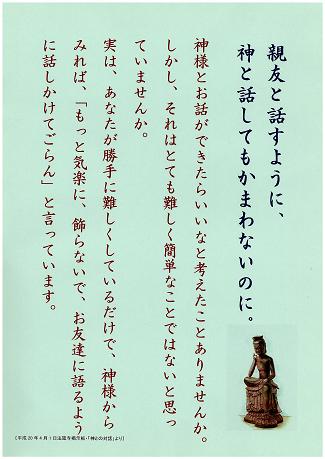 親友と話すように、
神と話してもかまわないのに。
神様とお話ができたらいいなと考えたことありませんか。
しかし、それはとても難しく簡単なことではないと思っ
ていませんか。
実は、あなたが勝手に難しくしているだけで、神様から
みれば、「もっと気楽に、飾らないで、お友達に語るよう
に話しかけてごらん」と言っています。